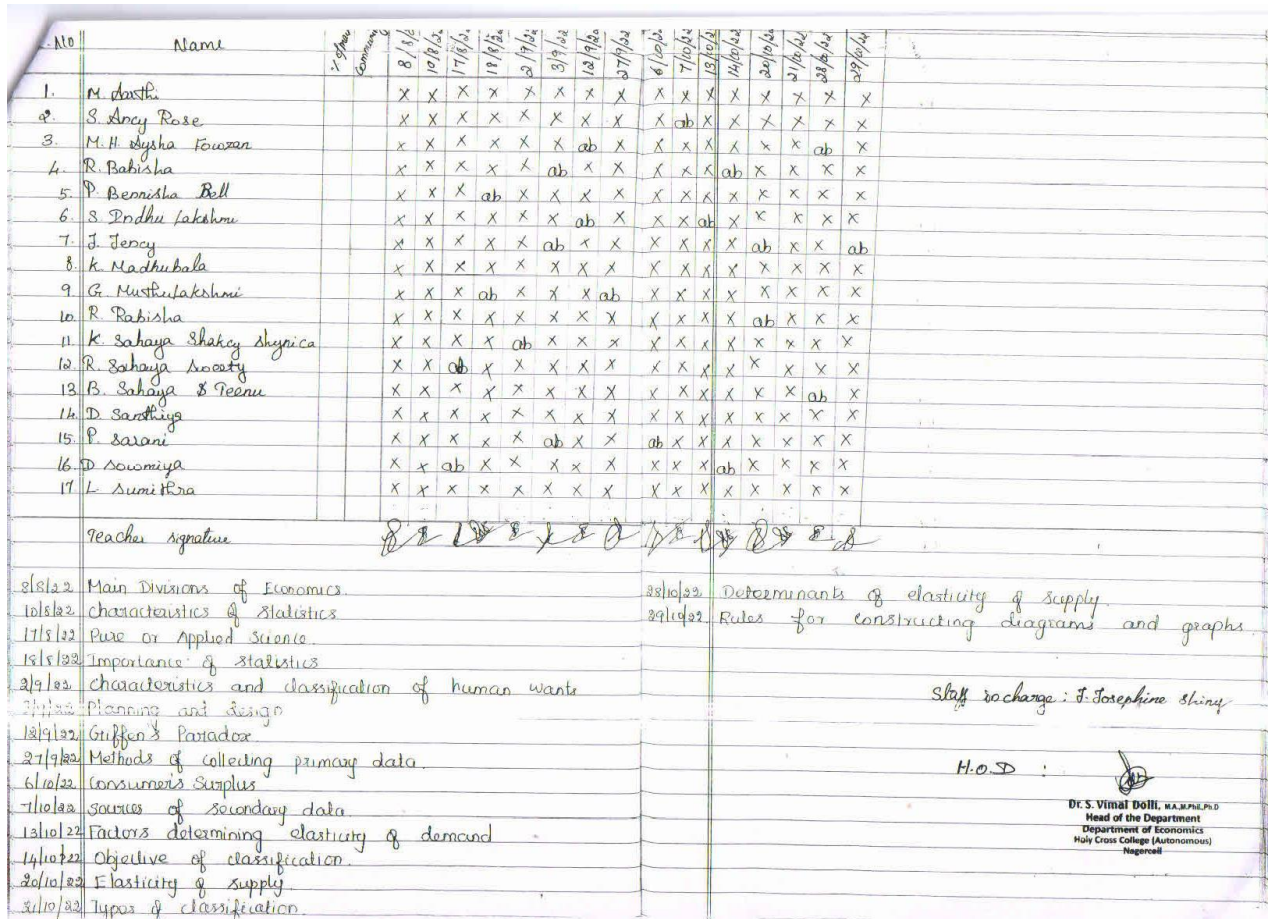 No Name 8/8/2 10/8/2 17/8/2 18/8/22 2/9/22 3/9/22 12/9/22 27/9/22 6/10/22 7/10/22 13/10/22 14/10/22 20/10/22 21/10/22 28/10/22 29/10/22
1. M. Aarthi x x x x x x x x x x x x x x x x
2. S. Ancy Rose x x x x x x x x x ab x x x x x x
3. M. H. Aysha Fowzan x x x x x x ab x x x x x x x ab x
4. R. Babisha x x x x x ab x x x x x ab x x x x
5. P. Bennisha Bell x x x ab x x x x x x x x x x x x
6. S. Indhu Lakshmi x x x x x x ab x x x ab x x x x x
7. J. Jency x x x x x ab x x x x x x ab x x ab
8. K. Madhubala x x x x x x x x x x x x x x x x
9. G. Muthulakshmi x x x ab x x x ab x x x x x x x x
10. R. Rabisha x x x x x x x x x x x x ab x x x
11. K. Sahaya Shakcy Shynica x x x x ab x x x x x x x x x x x
12. R. Sahaya Sweety x x ab x x x x x x x x x x x x x
13. B. Sahaya Teenu x x x x x x x x x x x x x x ab x
14. D. Santhiya x x x x x x x x x x x x x x x x
15. P. Sarani x x x x x ab x x ab x x x x x x x
16. D Sowmiya x x ab x x x x x x x x ab x x x x
17 L. Sumithra x x x x x x x x x x x x x x x x
Teacher signature
8/8/22 Main Divisions of Economics.
10/8/22 characteristics of statistics
17/8/22 Pure or Applied Science.
18/8/22 Importance of statistics
2/9/22 characteristics and classification of human wants
3/9/22 Planning and design
12/9/22 Giffen's Paradox.
27/9/22 Methods of collecting primary data.
6/10/22 Consumer's Surplus
7/10/22 sources of secondary data.
13/10/22 Factors determining elasticity of demand
14/10/22 Objective of classification.
20/10/22 Elasticity of supply.
21/10/22 Types of classification.
28/10/22 Determinants of elasticity of supply.
29/10/22 Rules for constructing diagrams and graphs.
Staff incharge : J. Josephine Shiny
H.O.D :
Dr. S. Vimal Dolli, M.A.,M.Phil.,Ph.D
Head of the Department
Department of Economics
Holy Cross College (Autonomous)
Nagercoil